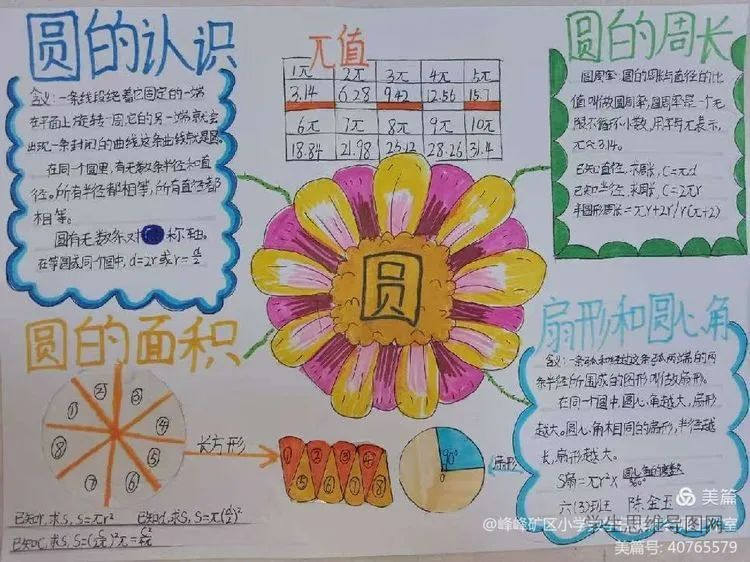 圆的认识
含义：一条线段绕着它固定的一端
在平面上旋转一周，它的另一端就会
出现一条封闭的曲线这条曲线就是圆。
在同一个圆里，有无数条半径和直
径。所有半径都相等，所有直径都
相等。
圆有无数条对称轴。
在等圆或同一个圆中，d=2r或r=d/2
π值
1π 2π 3π 4π 5π
3.14 6.28 9.42 12.56 15.7
6π 7π 8π 9π 10π
18.84 21.98 25.12 28.26 31.4
圆的周长
圆周率：圆的周长与直径的比
值叫做圆周率，圆周率是一个无
限不循环小数，用字母π表示，
π≈3.14。
已知直径，求周长，C=πd
已知半径，求周长，C=2πr
半圆形周长=πr+2r/r(π+2)
圆
圆的面积
① ② ③ ④ ⑤ ⑥ ⑦ ⑧
长方形
① ② ③ ④
⑤ ⑥ ⑦ ⑧
已知r，求S，S=πr² 已知d，求S，S=π(d/2)²
已知C，求S，S=(C/2π)²π=C²/4π
90°
扇形
扇形和圆心角
含义：一条弧和经过这条弧两端的两
条半径所围成的图形叫做扇形。
在同一个圆中，圆心角越大，扇形
越大。圆心角相同的扇形，半径越
长，扇形越大。
S扇=πr²×圆心角的度数/360°
六(3)班 陈金玉
美篇
@峰峰矿区小学
学生思维导图网
美篇号: 40765579